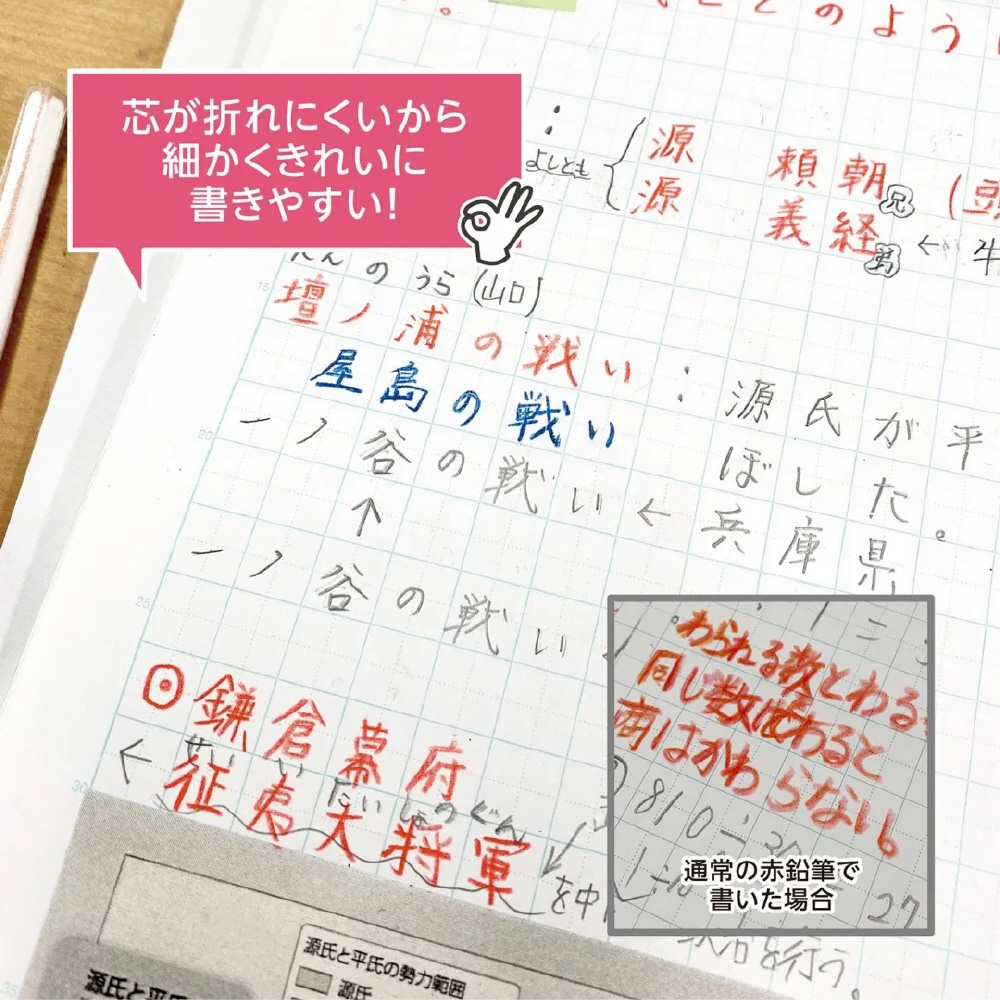 どのように
芯が折れにくいから
細かくきれいに
書きやすい!
よしとも
源 頼朝 兄
源 義経 弟 ← 牛
のうら(山口)
15
壇ノ浦の戦い:源氏が平
屋島の戦い ぼした。
20
一ノ谷の戦い←兵庫県
↑
一ノ谷の戦い
25
鎌倉幕府
せいい たいしょうぐん
← 征夷大将軍
30
を中
を行う。
われる数とわる
同じ数でわると
商はかわらない。
810÷30
27
通常の赤鉛筆で
書いた場合
源氏と平氏の勢力範囲
源氏
源氏と平氏
35